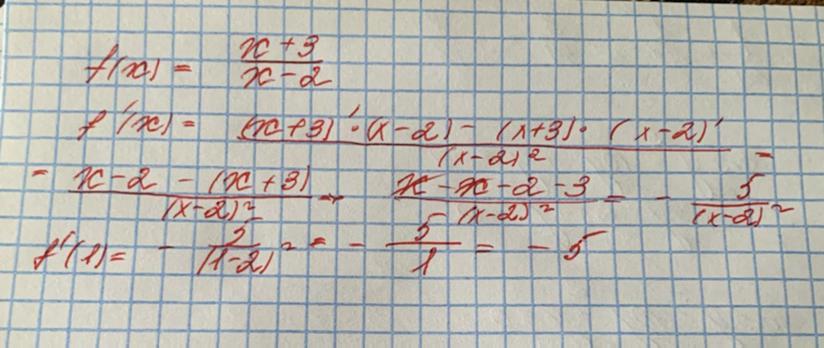 f(x) = (x+3)/(x-2)
f'(x) = ((x+3)'·(x-2) - (x+3)·(x-2)')/(x-2)² =
= (x-2-(x+3))/(x-2)² = (x-x-2-3)/(x-2)² = - 5/(x-2)²
f'(1) = - 5/(1-2)² = - 5/1 = -5